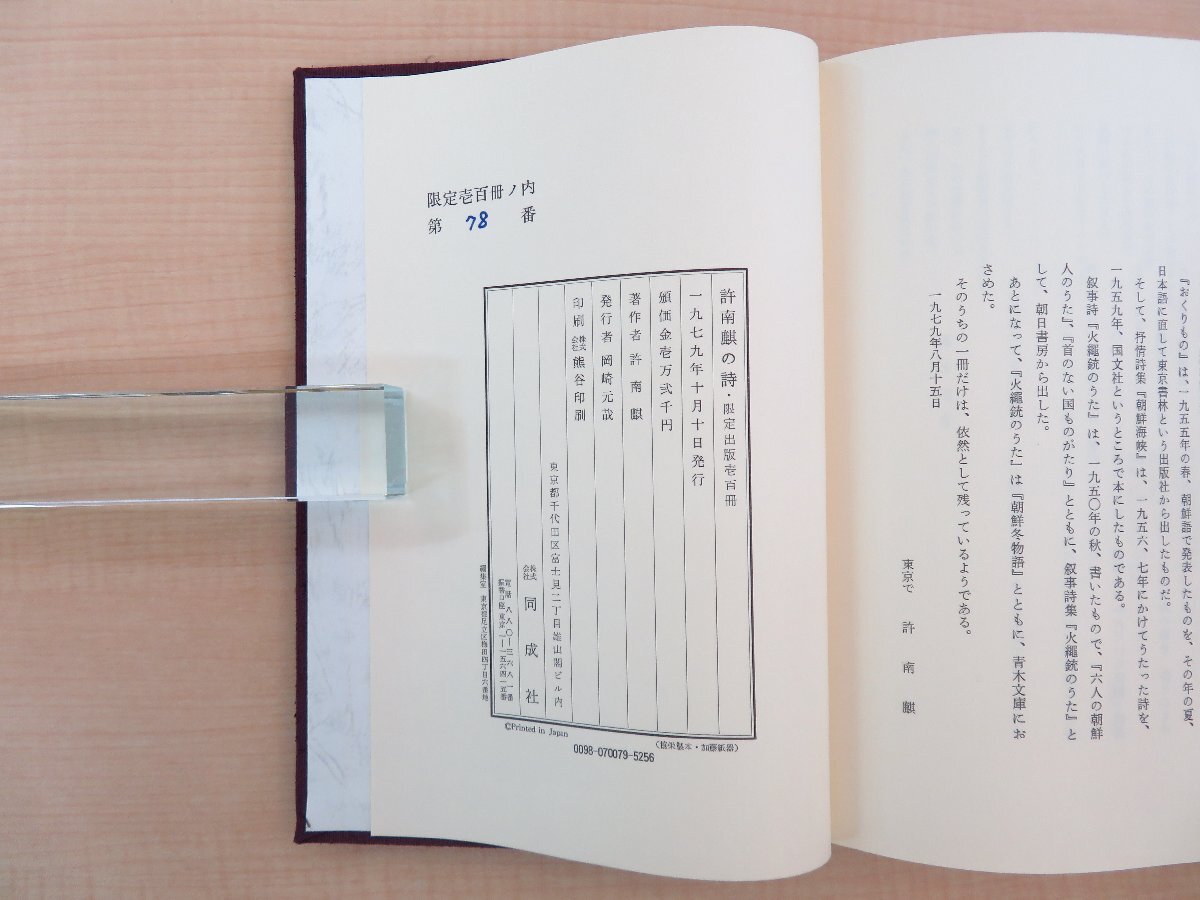 『おくりもの』は、一九五五年の春、朝鮮語で発表したものを、その年の夏、
日本語に直して東京書林という出版社から出したものだ。
そして、抒情詩集『朝鮮海峡』は、一九五六、七年にかけてうたった詩を、
一九五九年、国文社というところで本にしたものである。
叙事詩『火縄銃のうた』は、一九五〇年の秋、書いたもので、『六人の朝鮮
人のうた』、『首のない国ものがたり』とともに、叙事詩集『火縄銃のうた』と
して、朝日書房から出した。
あとになって、『火縄銃のうた』は『朝鮮冬物語』とともに、青木文庫にお
さめた。
そのうちの一冊だけは、依然として残っているようである。
一九七九年八月十五日
東京で 許南麒
限定壱百冊ノ内
第 78 番
許南麒の詩・限定出版壱百冊
一九七九年十月十日発行
頒価金壱万弐千円
著作者 許南麒
発行者 岡崎元哉
印刷 株式会社 熊谷印刷
東京都千代田区富士見二丁目雄山閣ビル内
株式会社 同成社
電話 八八〇―三六八一番
振替口座東京一―一五六四一五番
編集室 東京都足立区梅田四丁目六番地
©Printed in Japan
(協栄製本・加藤紙器)
0098-070079-5256